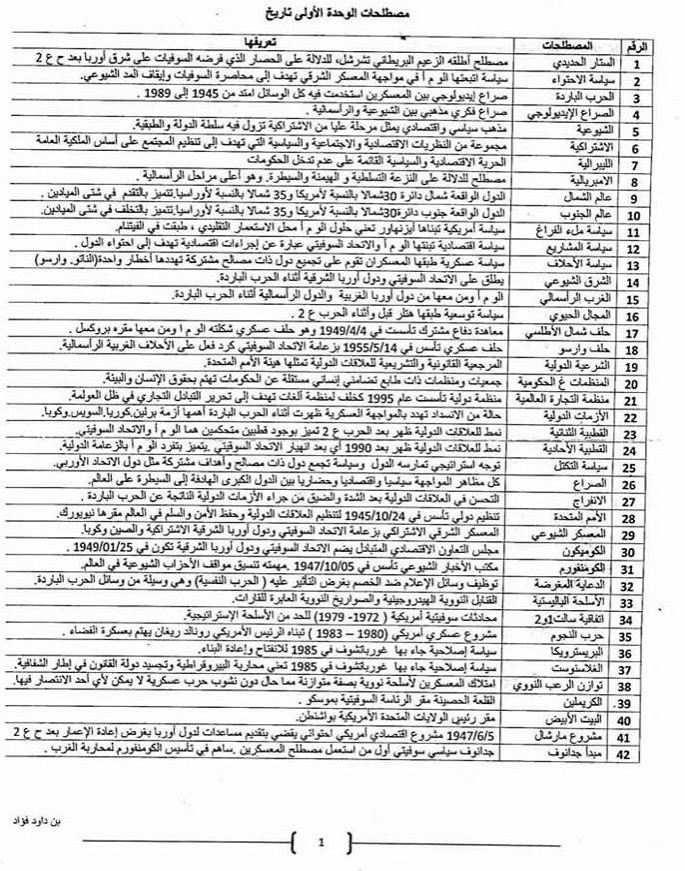 مصطلحات الوحدة الأولى تاريخ
الرقم المصطلحات تعريفها
1 الستار الحديدي مصطلح أطلقه الزعيم البريطاني تشرشل، للدلالة على الحصار الذي فرضه السوفيات على شرق أوربا بعد ح ع 2
2 سياسة الاحتواء سياسة اتبعتها الو م أ في مواجهة المعسكر الشرقي تهدف إلى محاصرة السوفيات وإيقاف المد الشيوعي.
3 الحرب الباردة صراع إيديولوجي بين المعسكرين استخدمت فيه كل الوسائل امتد من 1945 إلى 1989 .
4 الصراع الإيديولوجي صراع فكري مذهبي بين الشيوعية والرأسمالية .
5 الشيوعية مذهب سياسي واقتصادي يمثل مرحلة عليا من الاشتراكية تزول فيه سلطة الدولة والطبقية.
6 الاشتراكية مجموعة من النظريات الاقتصادية والاجتماعية والسياسية التي تهدف إلى تنظيم المجتمع على أساس الملكية العامة
7 الليبرالية الحرية الاقتصادية والسياسية القائمة على عدم تدخل الحكومات
8 الامبريالية مصطلح للدلالة على النزعة التسلطية و الهيمنة والسيطرة. وهو أعلى مراحل الرأسمالية .
9 عالم الشمال الدول الواقعة شمال دائرة 30شمالا بالنسبة لأمريكا و35 شمالا بالنسبة لأوراسيا.تتميز بالتقدم في شتى الميادين .
10 عالم الجنوب الدول الواقعة جنوب دائرة30شمالا بالنسبة لأمريكا و35 شمالا بالنسبة لأوراسيا.تتميز بالتخلف في شتى الميادين.
11 سياسة ملء الفراغ سياسة أمريكية تبناها أيزنهاور تعني حلول الو م أ محل الاستعمار التقليدي ، طبقت في الفيتنام.
12 سياسة المشاريع سياسة اقتصادية تبنتها الو م أ والاتحاد السوفيتي عبارة عن إجراءات اقتصادية تهدف إلى احتواء الدول .
13 سياسة الأحلاف سياسة عسكرية طبقها المعسكران تقوم على تجميع دول ذات مصالح مشتركة تهددها أخطار واحدة(الناتو. وارسو)
14 الشرق الشيوعي يطلق على الاتحاد السوفيتي ودول أوربا الشرقية أثناء الحرب الباردة.
15 الغرب الرأسمالي الو م أ ومن معها من دول أوربا الغربية والدول الرأسمالية أثناء الحرب الباردة.
16 المجال الحيوي سياسة توسعية طبقها هتلر قبل وأثناء الحرب ع 2 .
17 حلف شمال الأطلسي معاهدة دفاع مشترك تأسست في 1949/4/4 وهو حلف عسكري شكلته الو م أ ومن معها مقره بروكسل .
18 حلف وارسو حلف عسكري تأسس في 1955/5/14 بزعامة الاتحاد السوفيتي كرد فعل على الأحلاف الغربية الرأسمالية.
19 الشرعية الدولية المرجعية القانونية والتشريعية للعلاقات الدولية تمثلها هيئة الأمم المتحدة.
20 المنظمات غ الحكومية جمعيات ومنظمات ذات طابع تضامني إنساني مستقلة عن الحكومات تهتم بحقوق الإنسان والبيئة.
21 منظمة التجارة العالمية منظمة دولية تأسست عام 1995 كخلف لمنظمة ألغات تهدف إلى تحرير التبادل التجاري في ظل العولمة.
22 الأزمات الدولية حالة من الانسداد تهدد بالمواجهة العسكرية ظهرت أثناء الحرب الباردة أهمها أزمة برلين.كوريا.السويس.وكوبا.
23 القطبية الثنائية نمط للعلاقات الدولية ظهر بعد الحرب ع 2 تميز بوجود قطبين متحكمين هما الو م أ والاتحاد السوفيتي.
24 القطبية الأحادية نمط للعلاقات الدولية ظهر بعد 1990 أي بعد انهيار الاتحاد السوفيتي .يتميز بتفرد الو م أ بالزعامة الدولية.
25 سياسة التكتل توجه استراتيجي تمارسه الدول وسياسة تجمع دول ذات مصالح وأهداف مشتركة مثل دول الاتحاد الأوربي.
26 الصراع كل مظاهر المواجهة سياسيا واقتصاديا وحضاريا بين الدول الكبرى الهادفة إلى السيطرة على العالم.
27 الانفراج التحسن في العلاقات الدولية بعد الشدة والضيق من جراء الأزمات الدولية الناتجة عن الحرب الباردة .
28 الأمم المتحدة تنظيم دولي تأسس في 1945/10/24 لتنظيم العلاقات الدولية وحفظ الأمن والسلم في العالم مقرها نيويورك.
29 المعسكر الشيوعي المعسكر الشرقي الاشتراكي بزعامة الاتحاد السوفيتي ودول أوربا الشرقية الاشتراكية والصين وكوبا.
30 الكوميكون مجلس التعاون الاقتصادي المتبادل يضم الاتحاد السوفيتي ودول أوربا الشرقية تكون في 1949/01/25 .
31 الكومنفورم مكتب الأخبار الشيوعي تأسس في 1947/10/05 .مهمته تنسيق مواقف الأحزاب الشيوعية في العالم.
32 الدعاية المغرضة توظيف وسائل الإعلام ضد الخصم بغرض التأثير عليه ( الحرب النفسية) وهي وسيلة من وسائل الحرب الباردة.
33 الأسلحة الباليستية القنابل النووية الهيدروجينية والصواريخ النووية العابرة للقارات.
34 اتفاقية سالت1و2 محادثات سوفيتية أمريكية ( 1972- 1979) للحد من الأسلحة الإستراتيجية.
35 حرب النجوم مشروع عسكري أمريكي (1980 – 1983 ) تبناه الرئيس الأمريكي رونالد ريغان يهتم بعسكرة الفضاء .
36 البريسترويكا سياسة إصلاحية جاء بها غورباتشوف في 1985 للانفتاح وإعادة البناء.
37 الغلاسنوست سياسة إصلاحية جاء بها غورباتشوف في 1985 تعني محاربة البيروقراطية وتجسيد دولة القانون في إطار الشفافية.
38 توازن الرعب النووي امتلاك المعسكرين لأسلحة نووية بصفة متوازنة مما حال دون نشوب حرب عسكرية لا يمكن لأي أحد الانتصار فيها.
39. الكريملين القلعة الحصينة مقر الرئاسة السوفيتية بموسكو .
40 البيت الأبيض مقر رئيس الولايات المتحدة الأمريكية بواشنطن.
41 مشروع مارشال 1947/6/5 مشروع اقتصادي أمريكي احتوائي يقضي بتقديم مساعدات لدول أوربا بغرض إعادة الإعمار بعد ح ع 2
42 مبدأ جدانوف جدانوف سياسي سوفيتي أول من استعمل مصطلح المعسكرين .ساهم في تأسيس الكومنفورم لمحاربة الغرب .
بن داود فؤاد
1